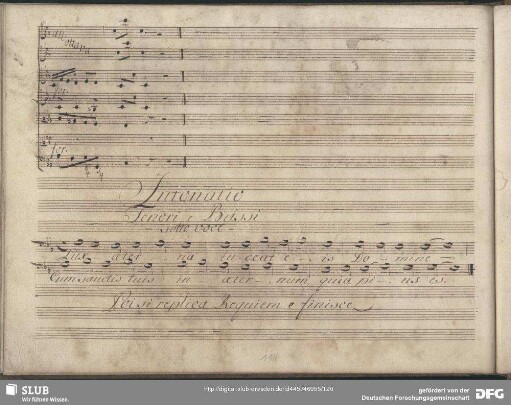 for.
for.
Intonatio
Tenori e Bassi
sotto voce
Lux aeter na luceat e is Do mine
Cum sanctis tuis in aeter num quia pi us es.
Poi si replica Requiem e finisce
SLUB
Wir führen Wissen.
gefördert von der
Deutschen Forschungsgemeinschaft
DFG